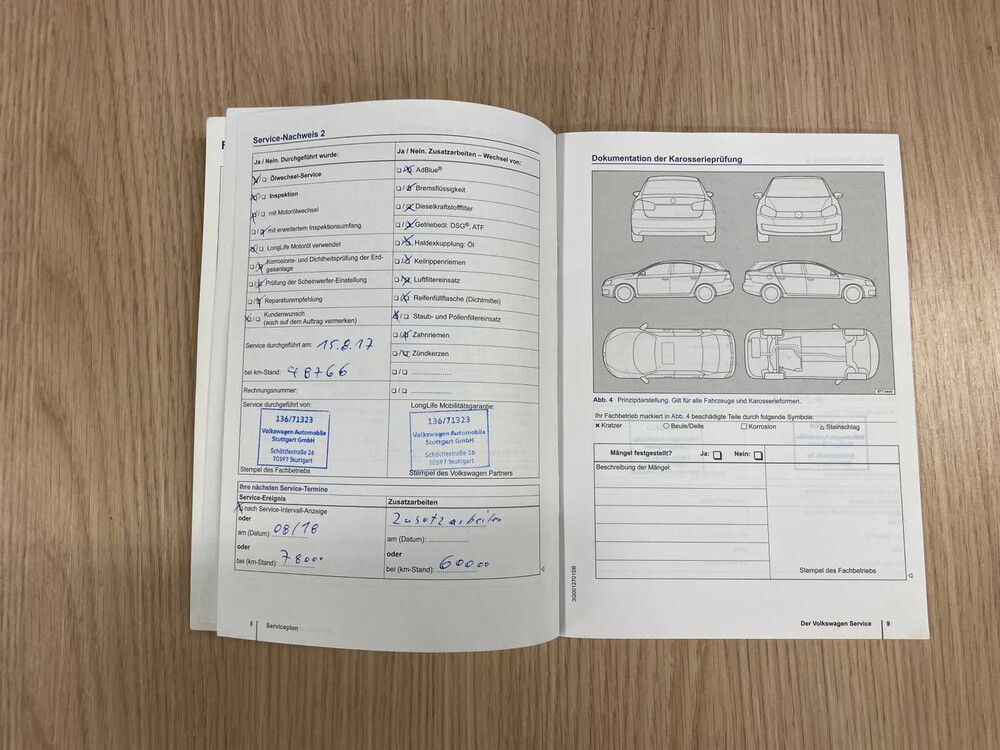 Service-Nachweis 2
Ja / Nein. Durchgeführt wurde:
Ja / Nein. Zusatzarbeiten – Wechsel von:
Ölwechsel-Service
AdBlue®
Inspektion
Bremsflüssigkeit
mit Motorölwechsel
Dieselkraftstofffilter
mit erweitertem Inspektionsumfang
Getriebeöl: DSG®, ATF
LongLife Motoröl verwendet
Haldexkupplung: Öl
Korrosions- und Dichtheitsprüfung der Erd-
gasanlage
Keilrippenriemen
Prüfung der Scheinwerfer-Einstellung
Luftfiltereinsatz
Reparaturempfehlung
Reifenfüllflasche (Dichtmittel)
Kundenwunsch
(auch auf dem Auftrag vermerken)
Staub- und Pollenfiltereinsatz
Zahnriemen
Service durchgeführt am: 15.8.17
Zündkerzen
bei km-Stand: 48766
Rechnungsnummer:
Service durchgeführt von:
LongLife Mobilitätsgarantie:
136/71323
Volkswagen Automobile
Stuttgart GmbH
Schöttlestraße 26
70597 Stuttgart
136/71323
Volkswagen Automobile
Stuttgart GmbH
Schöttlestraße 26
70597 Stuttgart
Stempel des Fachbetriebs
Stempel des Volkswagen Partners
Ihre nächsten Service-Termine
Service-Ereignis
Zusatzarbeiten
nach Service-Intervall-Anzeige
Zusatzarbeiten
oder
am (Datum): 08/18
am (Datum):
oder
oder
bei (km-Stand): 78000
bei (km-Stand): 60000
8 Serviceplan
Dokumentation der Karosserieprüfung
Abb. 4 Prinzipdarstellung. Gilt für alle Fahrzeuge und Karosserieformen.
Ihr Fachbetrieb markiert in Abb. 4 beschädigte Teile durch folgende Symbole:
× Kratzer ○ Beule/Delle □ Korrosion △ Steinschlag
Mängel festgestellt? Ja: Nein:
Beschreibung der Mängel:
Stempel des Fachbetriebs
3Q0012701SB
Der Volkswagen Service 9